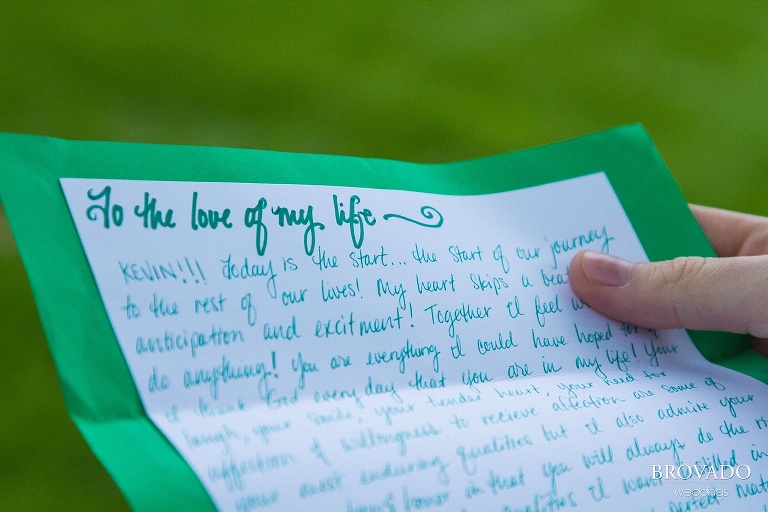 To the love of my life
KEVIN!!! Today is the start... the start of our journey
to the rest of our lives! My heart skips a beat
anticipation and excitment! Together I feel w
do anything! You are everything I could have hoped for
I thank God every day that you are in my life! Your
laugh, your smile, your tender heart, your need for
affection & willongness to recieve affection are some of
your most enduring qualities but I also admire your
honor in that you will always do the ri
qualities I want instilled in
perfect mat
BROVADO
weddings